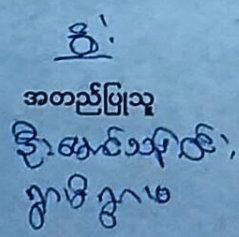 အတည်ပြုသူ
ဦးအောင်သန်း
ရွာမိရွာဖ